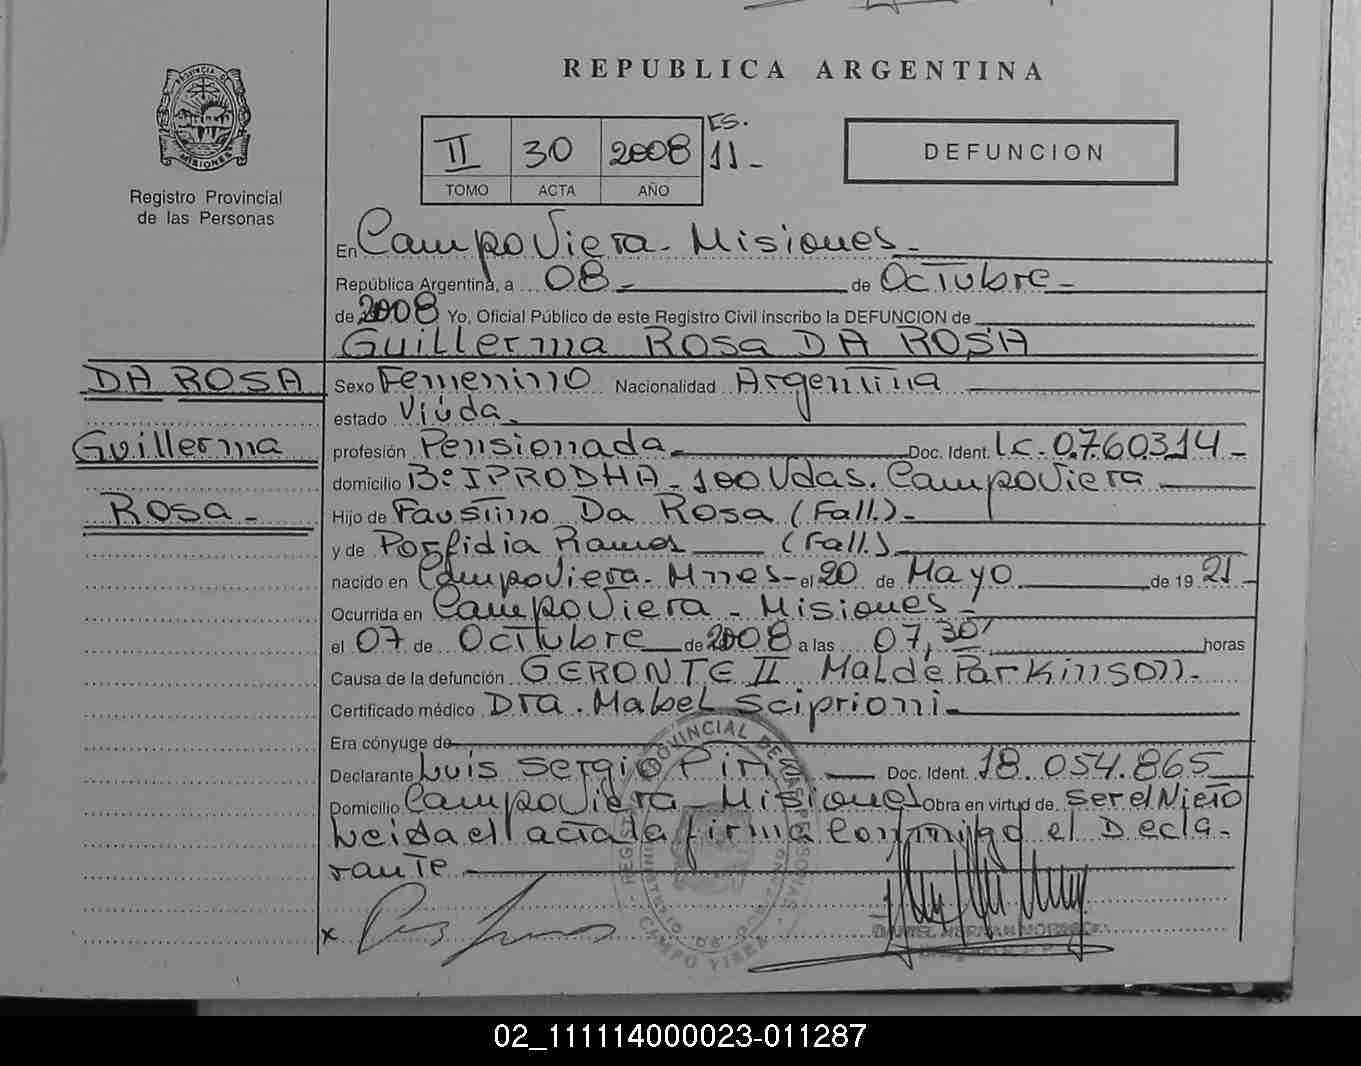 REPUBLICA ARGENTINA
PROVINCIA DE
MISIONES
Registro Provincial
de las Personas
II 30 2008 ES. 11-
TOMO ACTA AÑO
DEFUNCION
En Campo Viera - Misiones -
República Argentina, a 08 - de Octubre -
de 2008 Yo, Oficial Público de este Registro Civil inscribo la DEFUNCION de
Guillerma Rosa DA ROSA
DA ROSA
Guillerma
Rosa -
Sexo Femenino Nacionalidad Argentina
estado Viúda.
profesión Pensionada - Doc. Ident. l.c. 0.760.314 -
domicilio B° IPRODHA - 100 Vdas. Campo Viera
Hijo de Faustino Da Rosa (Fall.) -
y de Porfidia Ramos (Fall.)
nacido en Campo Viera - Mnes - el 20 de Mayo de 19 21 -
Ocurrida en Campo Viera - Misiones -
el 07 de Octubre de 2008 a las 07,30' horas
Causa de la defunción GERONTE II Mal de Parkinson -
Certificado médico Dra. Mabel Sciprioni -
Era cónyuge de
Declarante Luis Sergio Piris Doc. Ident. 18.054.865
Domicilio Campo Viera - Misiones Obra en virtud de ser el Nieto
Leida el acta la firma conmigo el Decla-
rante
x
REGISTRO PROVINCIAL DE LAS PERSONAS
CAMPO VIERA
02_111114000023-011287